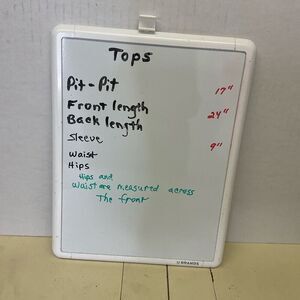 Tops
Pit-Pit 17"
Front length 24"
Back length
Sleeve 9"
Waist
Hips
Hips and
Waist are measured across
The front
U BRANDS